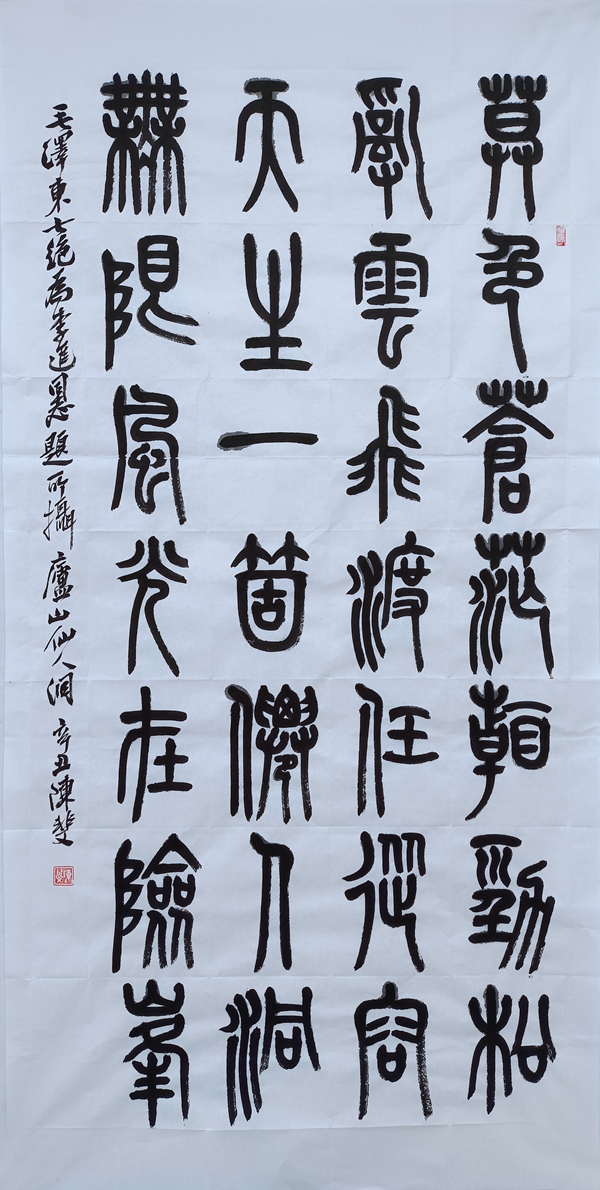 莫色蒼茫看勁松
亂雲飛渡任從容
天生一箇僊人洞
無限風光在險峯
毛澤東七絕為李進同志題所攝廬山仙人洞 辛丑陳斐